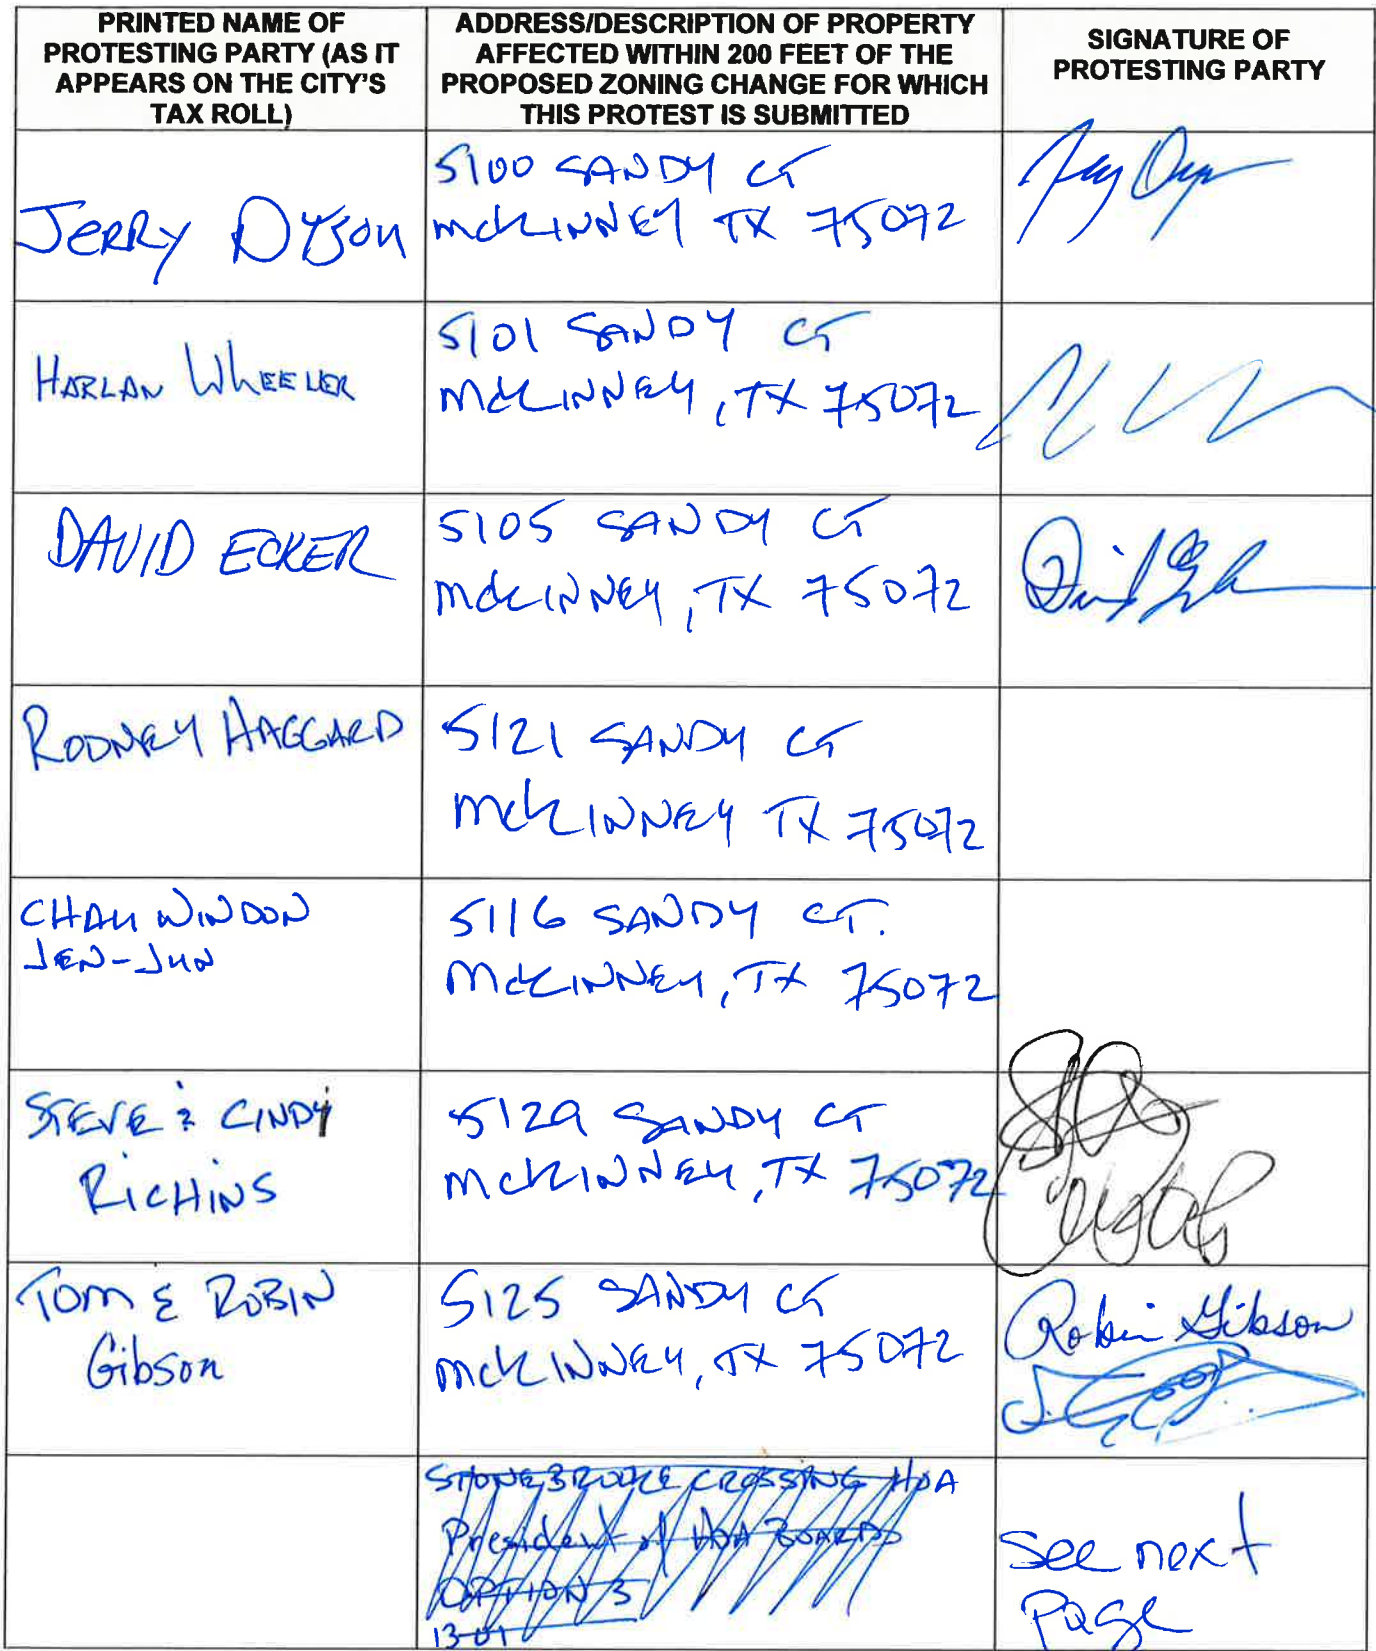 PRINTED NAME OF
PROTESTING PARTY (AS IT
APPEARS ON THE CITY'S
TAX ROLL)
ADDRESS/DESCRIPTION OF PROPERTY
AFFECTED WITHIN 200 FEET OF THE
PROPOSED ZONING CHANGE FOR WHICH
THIS PROTEST IS SUBMITTED
SIGNATURE OF
PROTESTING PARTY
JERRY DYSON
5100 SANDY CT
McKINNEY TX 75072
HARLAN WHEELER
5101 SANDY CT
McKINNEY, TX 75072
DAVID ECKER
5105 SANDY CT
McKINNEY, TX 75072
RODNEY HAGGARD
5121 SANDY CT
McKINNEY TX 75072
CHAU WINDON
JEN-JUN
5116 SANDY CT.
McKINNEY, TX 75072
STEVE & CINDY
RICHINS
5129 SANDY CT
McKINNEY, TX 75072
TOM & ROBIN
Gibson
5125 SANDY CT
McKINNEY, TX 75072
Robin Gibson
STONEBROOKE CROSSING HOA
President of HOA BOARD
OPTION 3
13-01
See next
Page